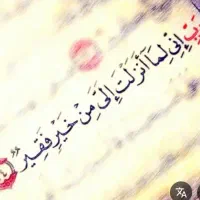 رَبِّ إِنِّي لِمَا أَنْزَلْتَ إِلَيَّ مِنْ خَيْرٍ فَقِيرٌ